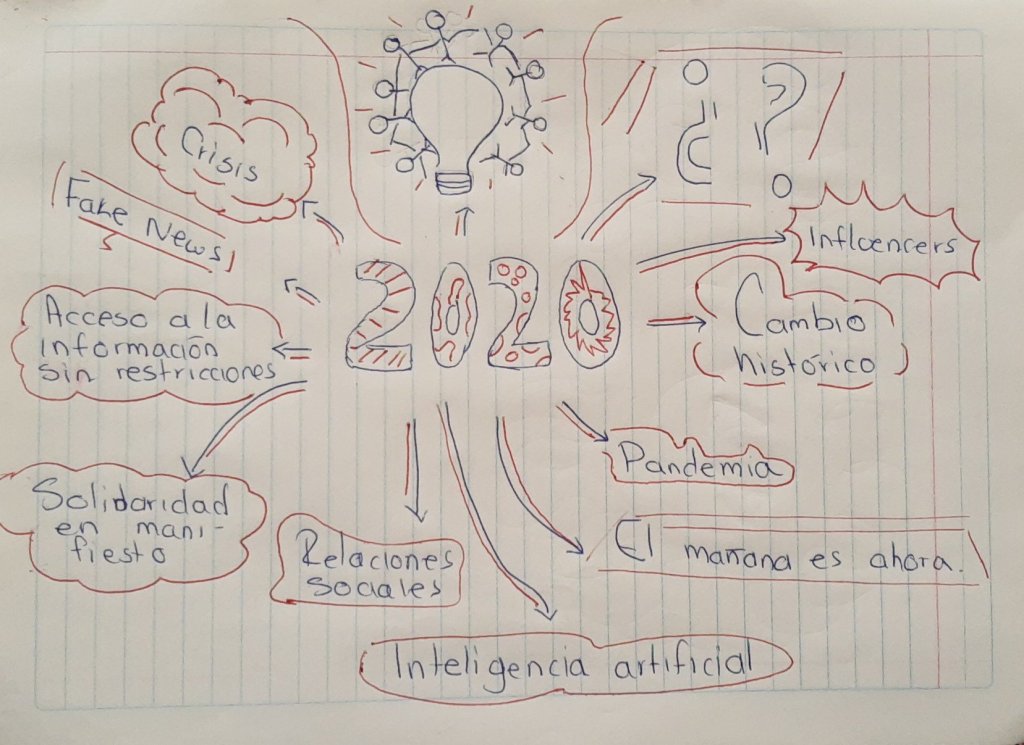 ¿ ?
Crisis
Fake News
Influencers
2020
Acceso a la
información
sin restricciones
Cambio
histórico
Pandemia
Solidaridad
en mani-
fiesto
Relaciones
sociales
El mañana es ahora.
Inteligencia artificial